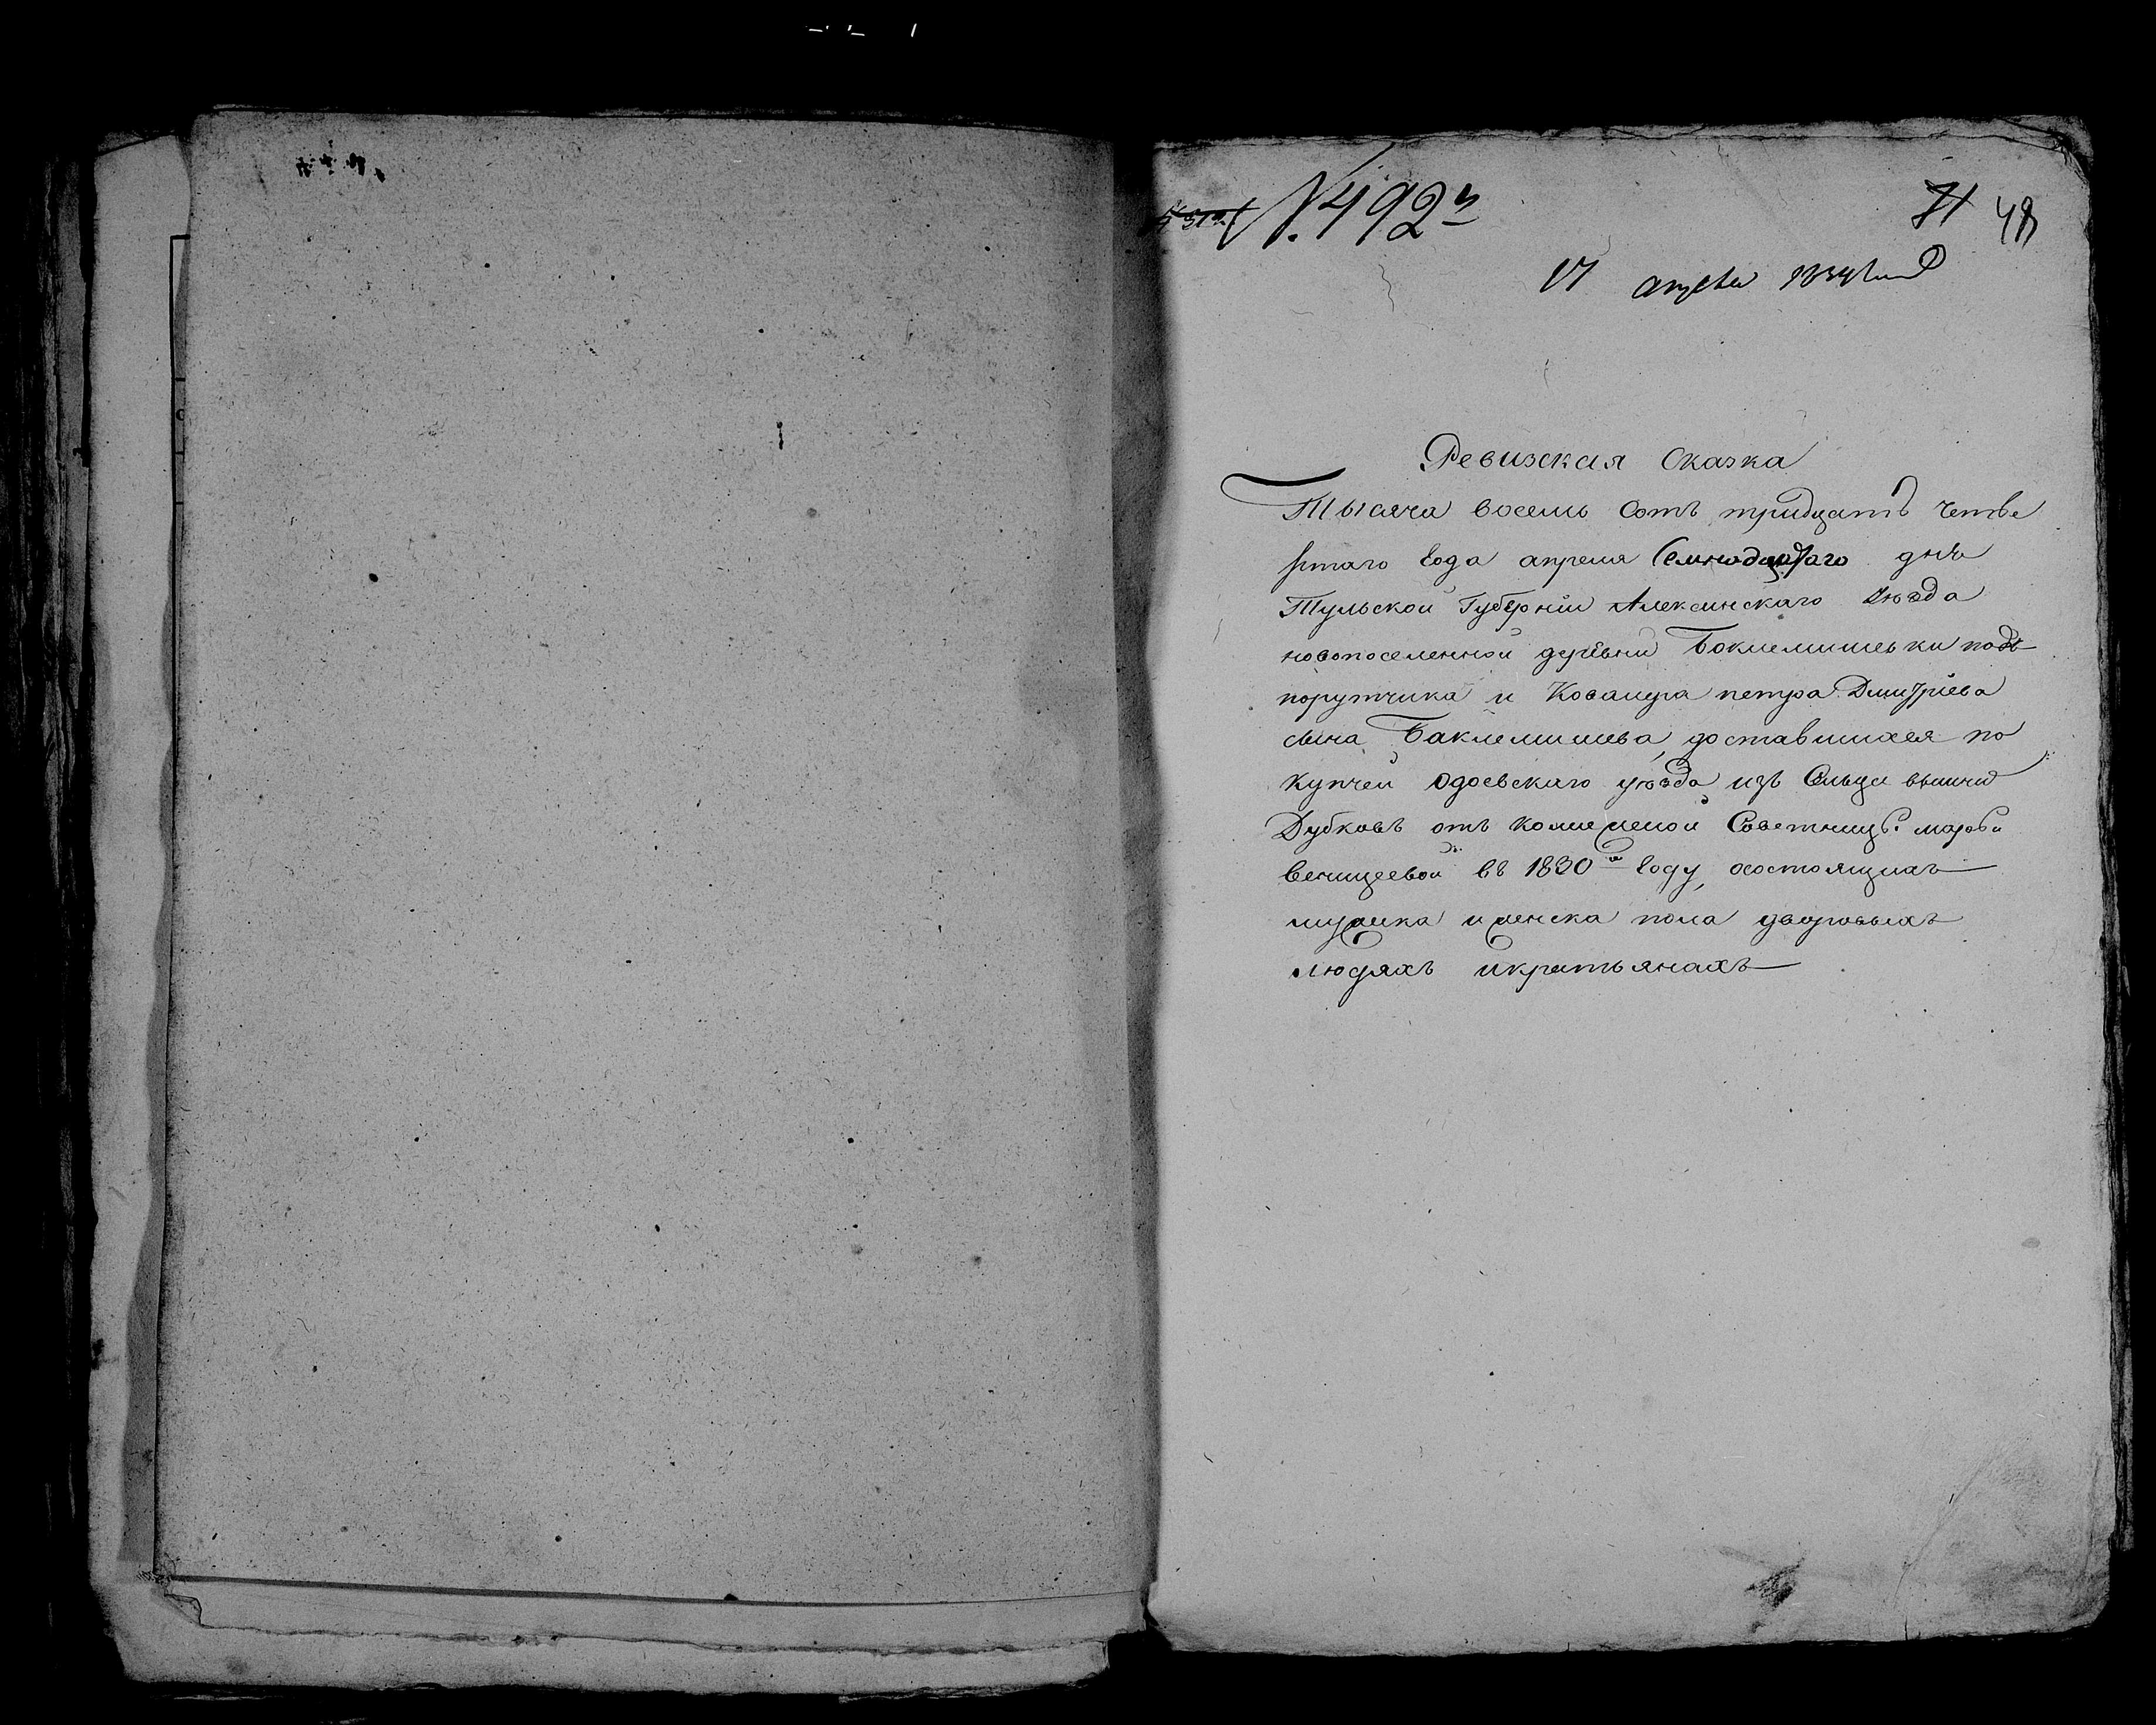 N. 492й
71 48
17 апреля 1834 года
Ревизская Сказка
Тысяча восемь Сотъ тридцать четве
ртаго года апреля Семнадцатаго дня
Тульской Губерніи Алексинскаго уѣзда
новопоселенной деревни Боклемишевки подъ
порутчика и Кавалера петра Дмитріева
сына Баклемишева, доставшихся по
купчей Одоевскаго уѣзда изъ Сельца
Дубковъ отъ Советницы
въ 1830м году, осостоящихъ
мужеска и женска пола дворовыхъ
людяхъ икрестьянахъ